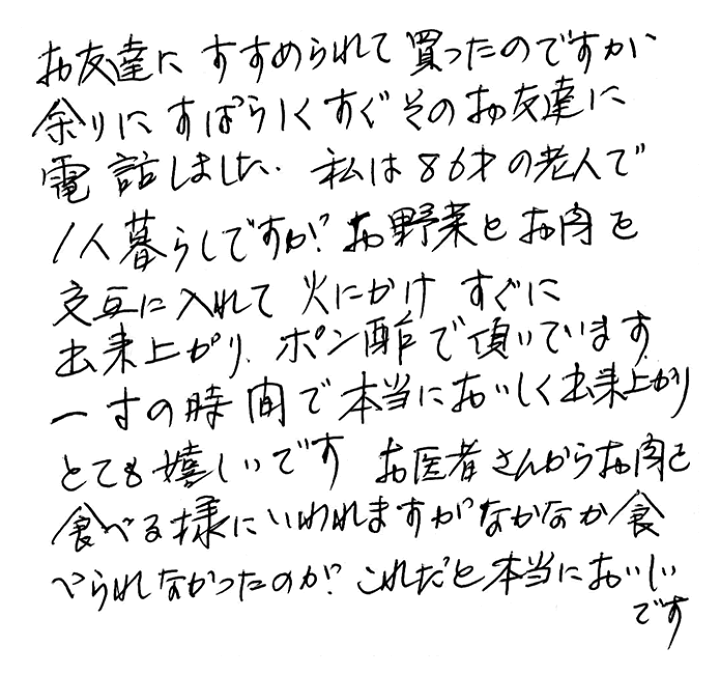 お友達に すすめられて 買ったのですが、
余りに すばらしく すぐ そのお友達に
電話しました. 私は86才の老人で
1人暮らしですが? お野菜とお肉を
交互に入れて 火にかけ すぐに
出来上がり. ポン酢で頂いています.
一寸の時間で本当においしく出来上がり
とても嬉しいです お医者さんからお肉を
食べる様にいわれますがなかなか食
べられなかったのが? これだと本当においしい
です